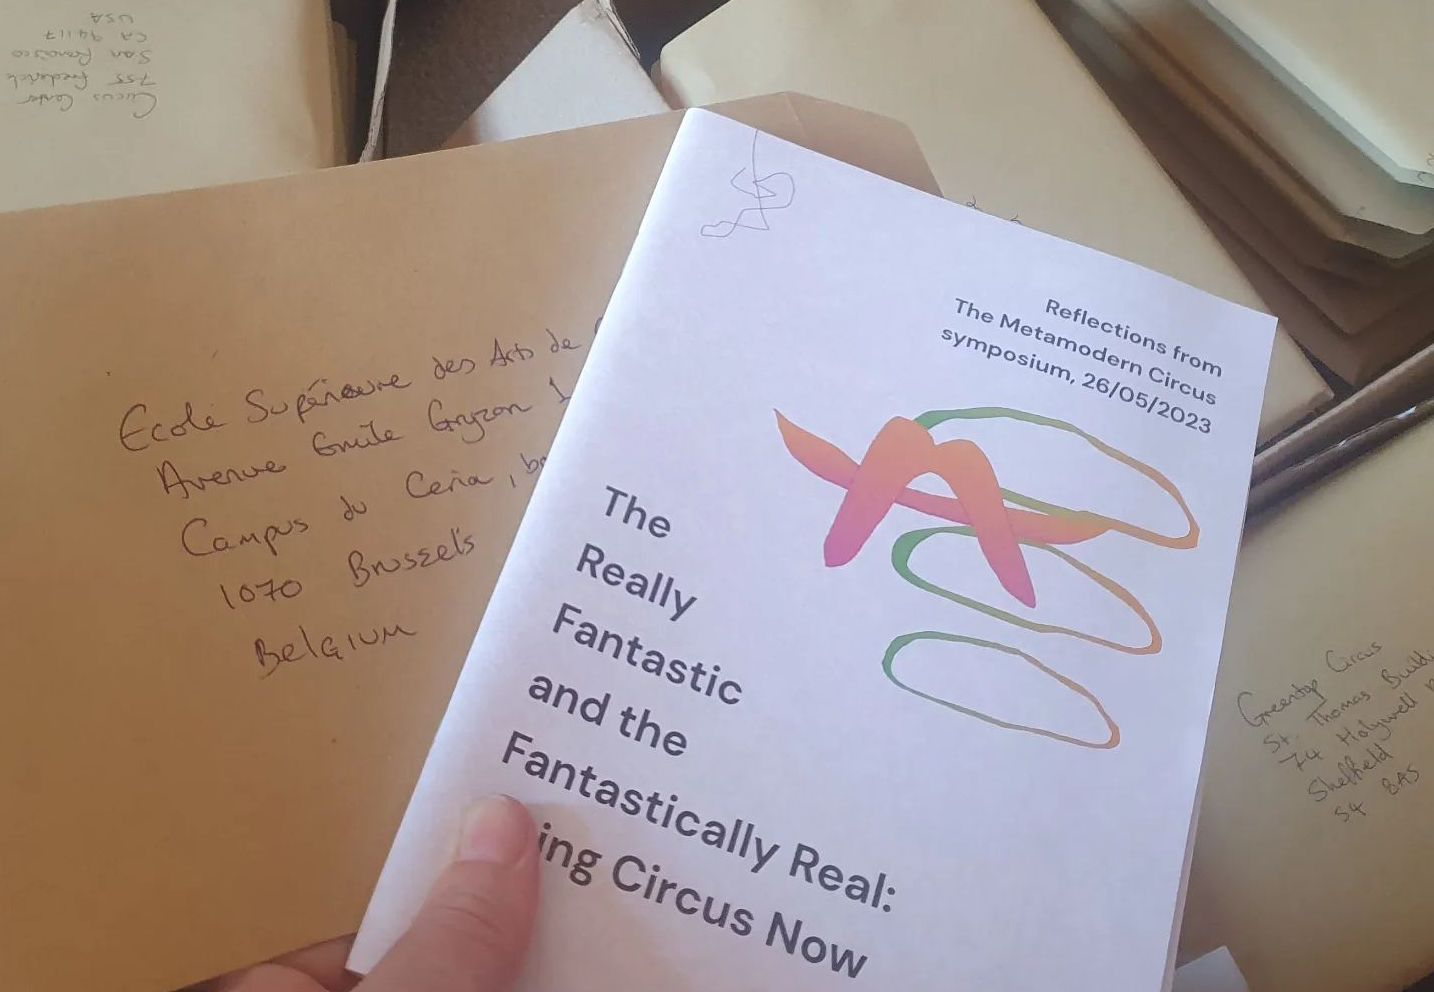 Circus Center
755 Frederick
San Francisco
CA 94117
USA
Ecole Supérieure des Arts de
Avenue Emile Gryzon 1
Campus du Ceria,
1070 Brussels
Belgium
Reflections from
The Metamodern Circus
symposium, 26/05/2023
The
Really
Fantastic
and the
Fantastically Real:
ing Circus Now
Greentop Circus
St. Thomas Building
74 Holywell
Sheffield
S4 8AS